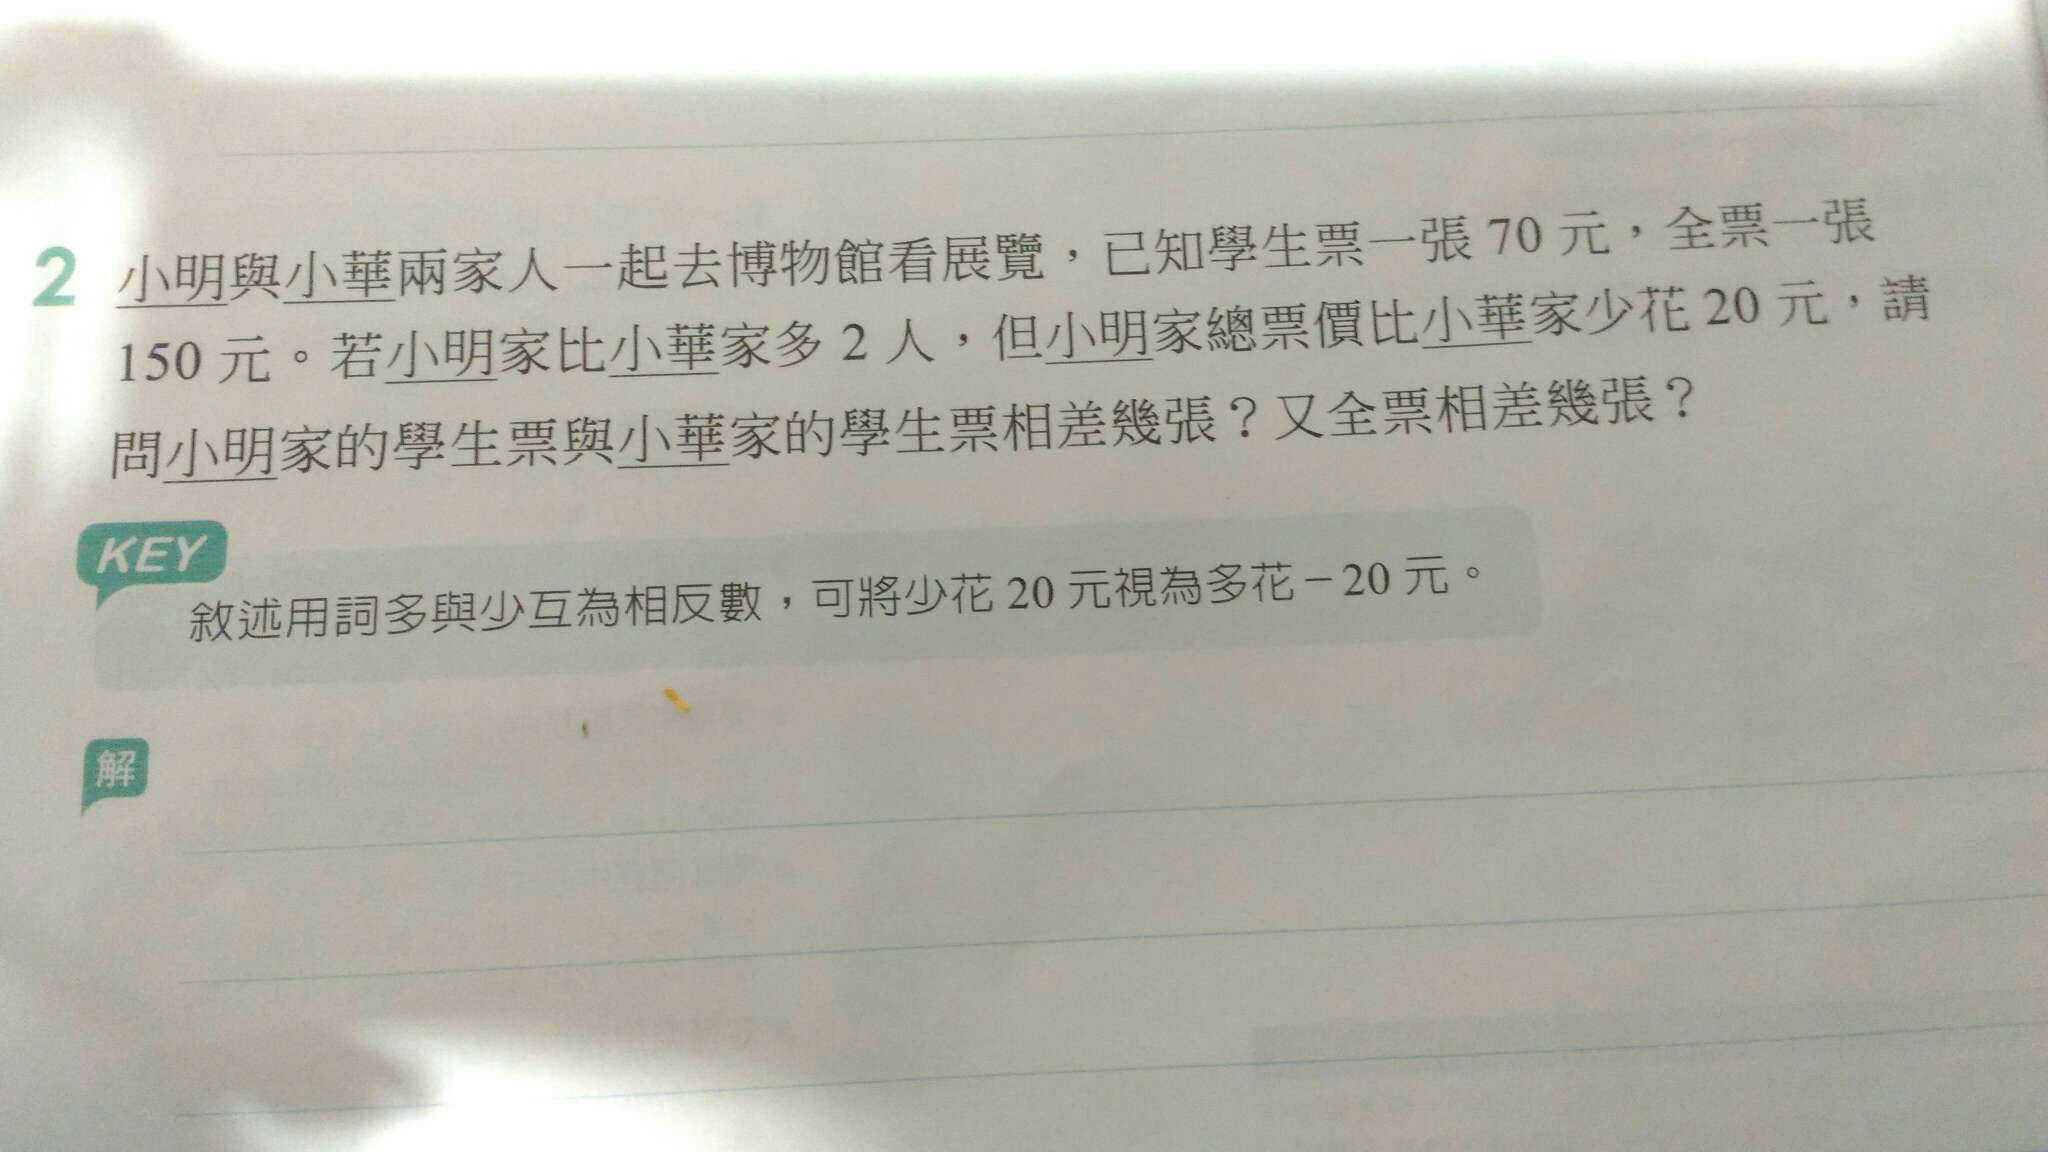 2 小明與小華兩家人一起去博物館看展覽，已知學生票一張 70 元，全票一張
150 元。若小明家比小華家多 2 人，但小明家總票價比小華家少花 20 元，請
問小明家的學生票與小華家的學生票相差幾張？又全票相差幾張？
KEY
敘述用詞多與少互為相反數，可將少花 20 元視為多花－20 元。
解